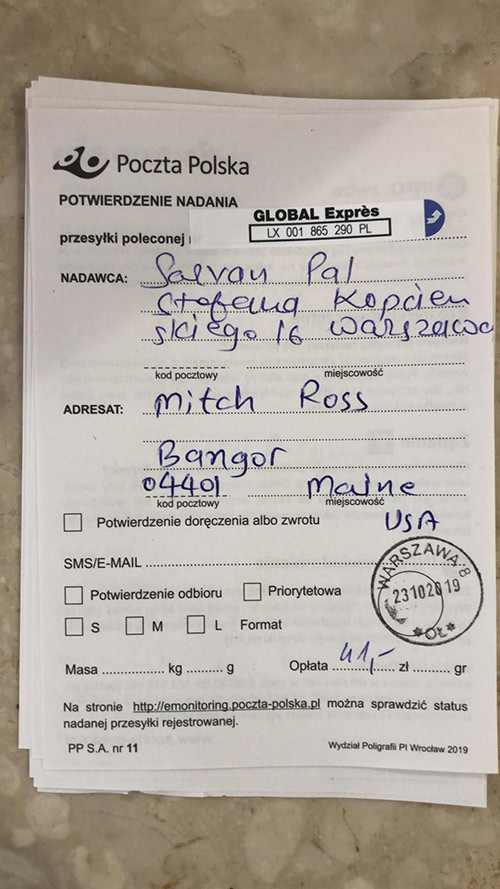 Poczta Polska
POTWIERDZENIE NADANIA
GLOBAL Exprès
LX 001 865 290 PL
przesyłki poleconej
NADAWCA: Sarvan Pal
Stefana Kopcien
skiego 16 Warszawa
kod pocztowy miejscowość
ADRESAT: Mitch Ross
Bangor
04401 Maine
kod pocztowy miejscowość
USA
Potwierdzenie doręczenia albo zwrotu
SMS/E-MAIL
Potwierdzenie odbioru Priorytetowa
S M L Format
WARSZAWA 8
23102019
*OŁ*
Masa ............... kg ......... g Opłata 41,- zł ......... gr
Na stronie http://emonitoring.poczta-polska.pl można sprawdzić status
nadanej przesyłki rejestrowanej.
PP S.A. nr 11 Wydział Poligrafii PI Wrocław 2019